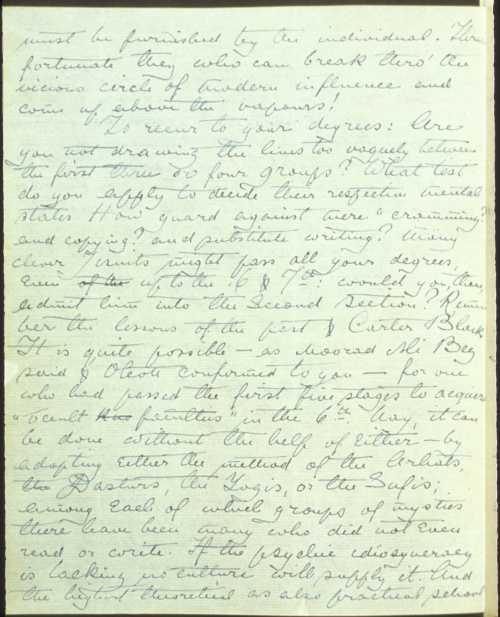 must be furnished by the individual. Thrice
fortunate they who can break thro' the
vicious circle of modern influence and
come up above the vapours!
To recur to your degrees: Are
you not drawing the lines too vaguely between
the first three or four groups? What test
do you apply to decide their respective mental
states? How guard against mere "cramming"
and copying? and substitute writing? Many
clever Jesuits might pass all your degrees,
even of the up to the 6 & 7th: would you, then,
admit him into the Second Section? Remem
ber the lessons of the past & Carter Blake.
It is quite possible — as Moorad Ali Beg
said & Olcott confirmed to you — for one
who had passed the first five stages to acquire
"occult the faculties" in the 6th. Nay, it can
be done without the help of either — by
adopting either the method of the Arhats,
the Dasturs, the Yogis, or the Sufis;
among each of which groups of mystics
there have been many who did not even
read or write. If the psychic idiosyncracy
is lacking, no culture will supply it. And
the highest theoretical as also practical school